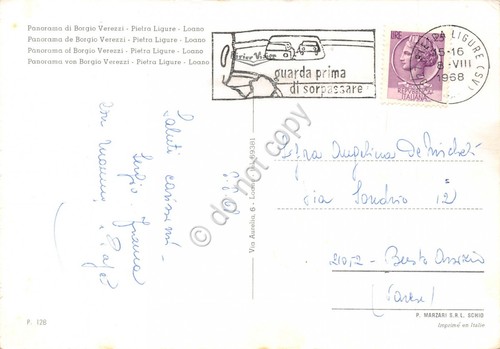 Panorama di Borgio Verezzi - Pietra Ligure - Loano
Panorama de Borgio Verezzi - Pietra Ligure - Loano
Panorama of Borgio Verezzi - Pietra Ligure - Loano
Panorama von Borgio Verezzi - Pietra Ligure - Loano
guarda prima
di sorpassare
LIRE
LIGURE (SV)
15-16
VIII
1968
Saluti carissimi
Sergio
con mamma
e Papà
Via Aurelia, 6 - Loano
do not copy
Angelina De Micheli
via Sondrio 12
21052 - Busto Arsizio
(Varese)
P. 128
P. MARZARI S.R.L. SCHIO
Imprimé en Italie